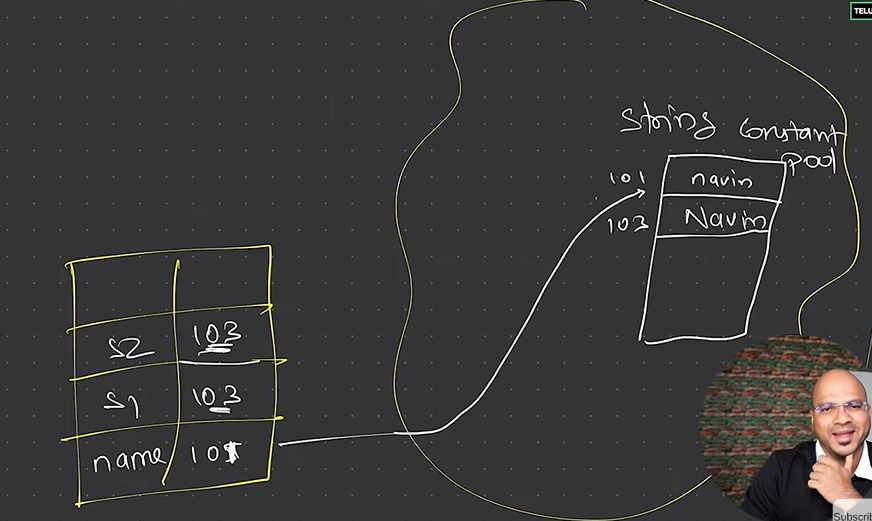 TELU
String Constant
pool
101 navin
103 Navin
S2 103
S1 103
name 101
Subscrib